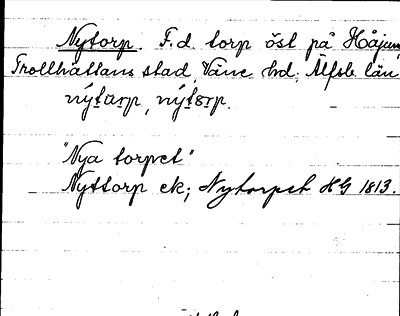 Nytorp. F.d. torp öst på Håjum,
Trollhättans stad, Väne hd; Älfsb. län
nýtɑrp, nýtɞrp.
"Nya torpet"
Nyttorp ek; Nytorpet HG 1813.